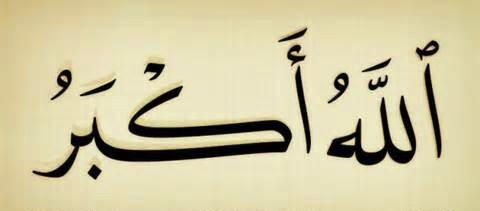 ٱللَّهُ أَكْبَرُ